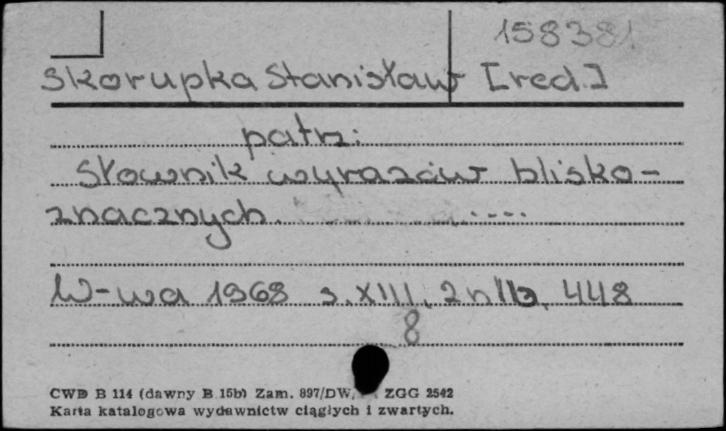 158381
Skorupka Stanisław [red.]
patrz:
Słownik wyrazów blisko-
znacznych.
W-wa 1968 s. XIII, 2 nlb, 448
8
CWD B 114 (dawny B 15b) Zam. 897/DW, ZGG 2542
Karta katalogowa wydawnictw ciągłych i zwartych.